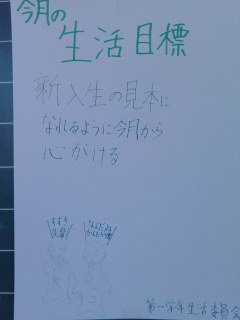 今月の
生活目標
新入生の見本に
なれるように今月から
心がける
第一学年生活委員会